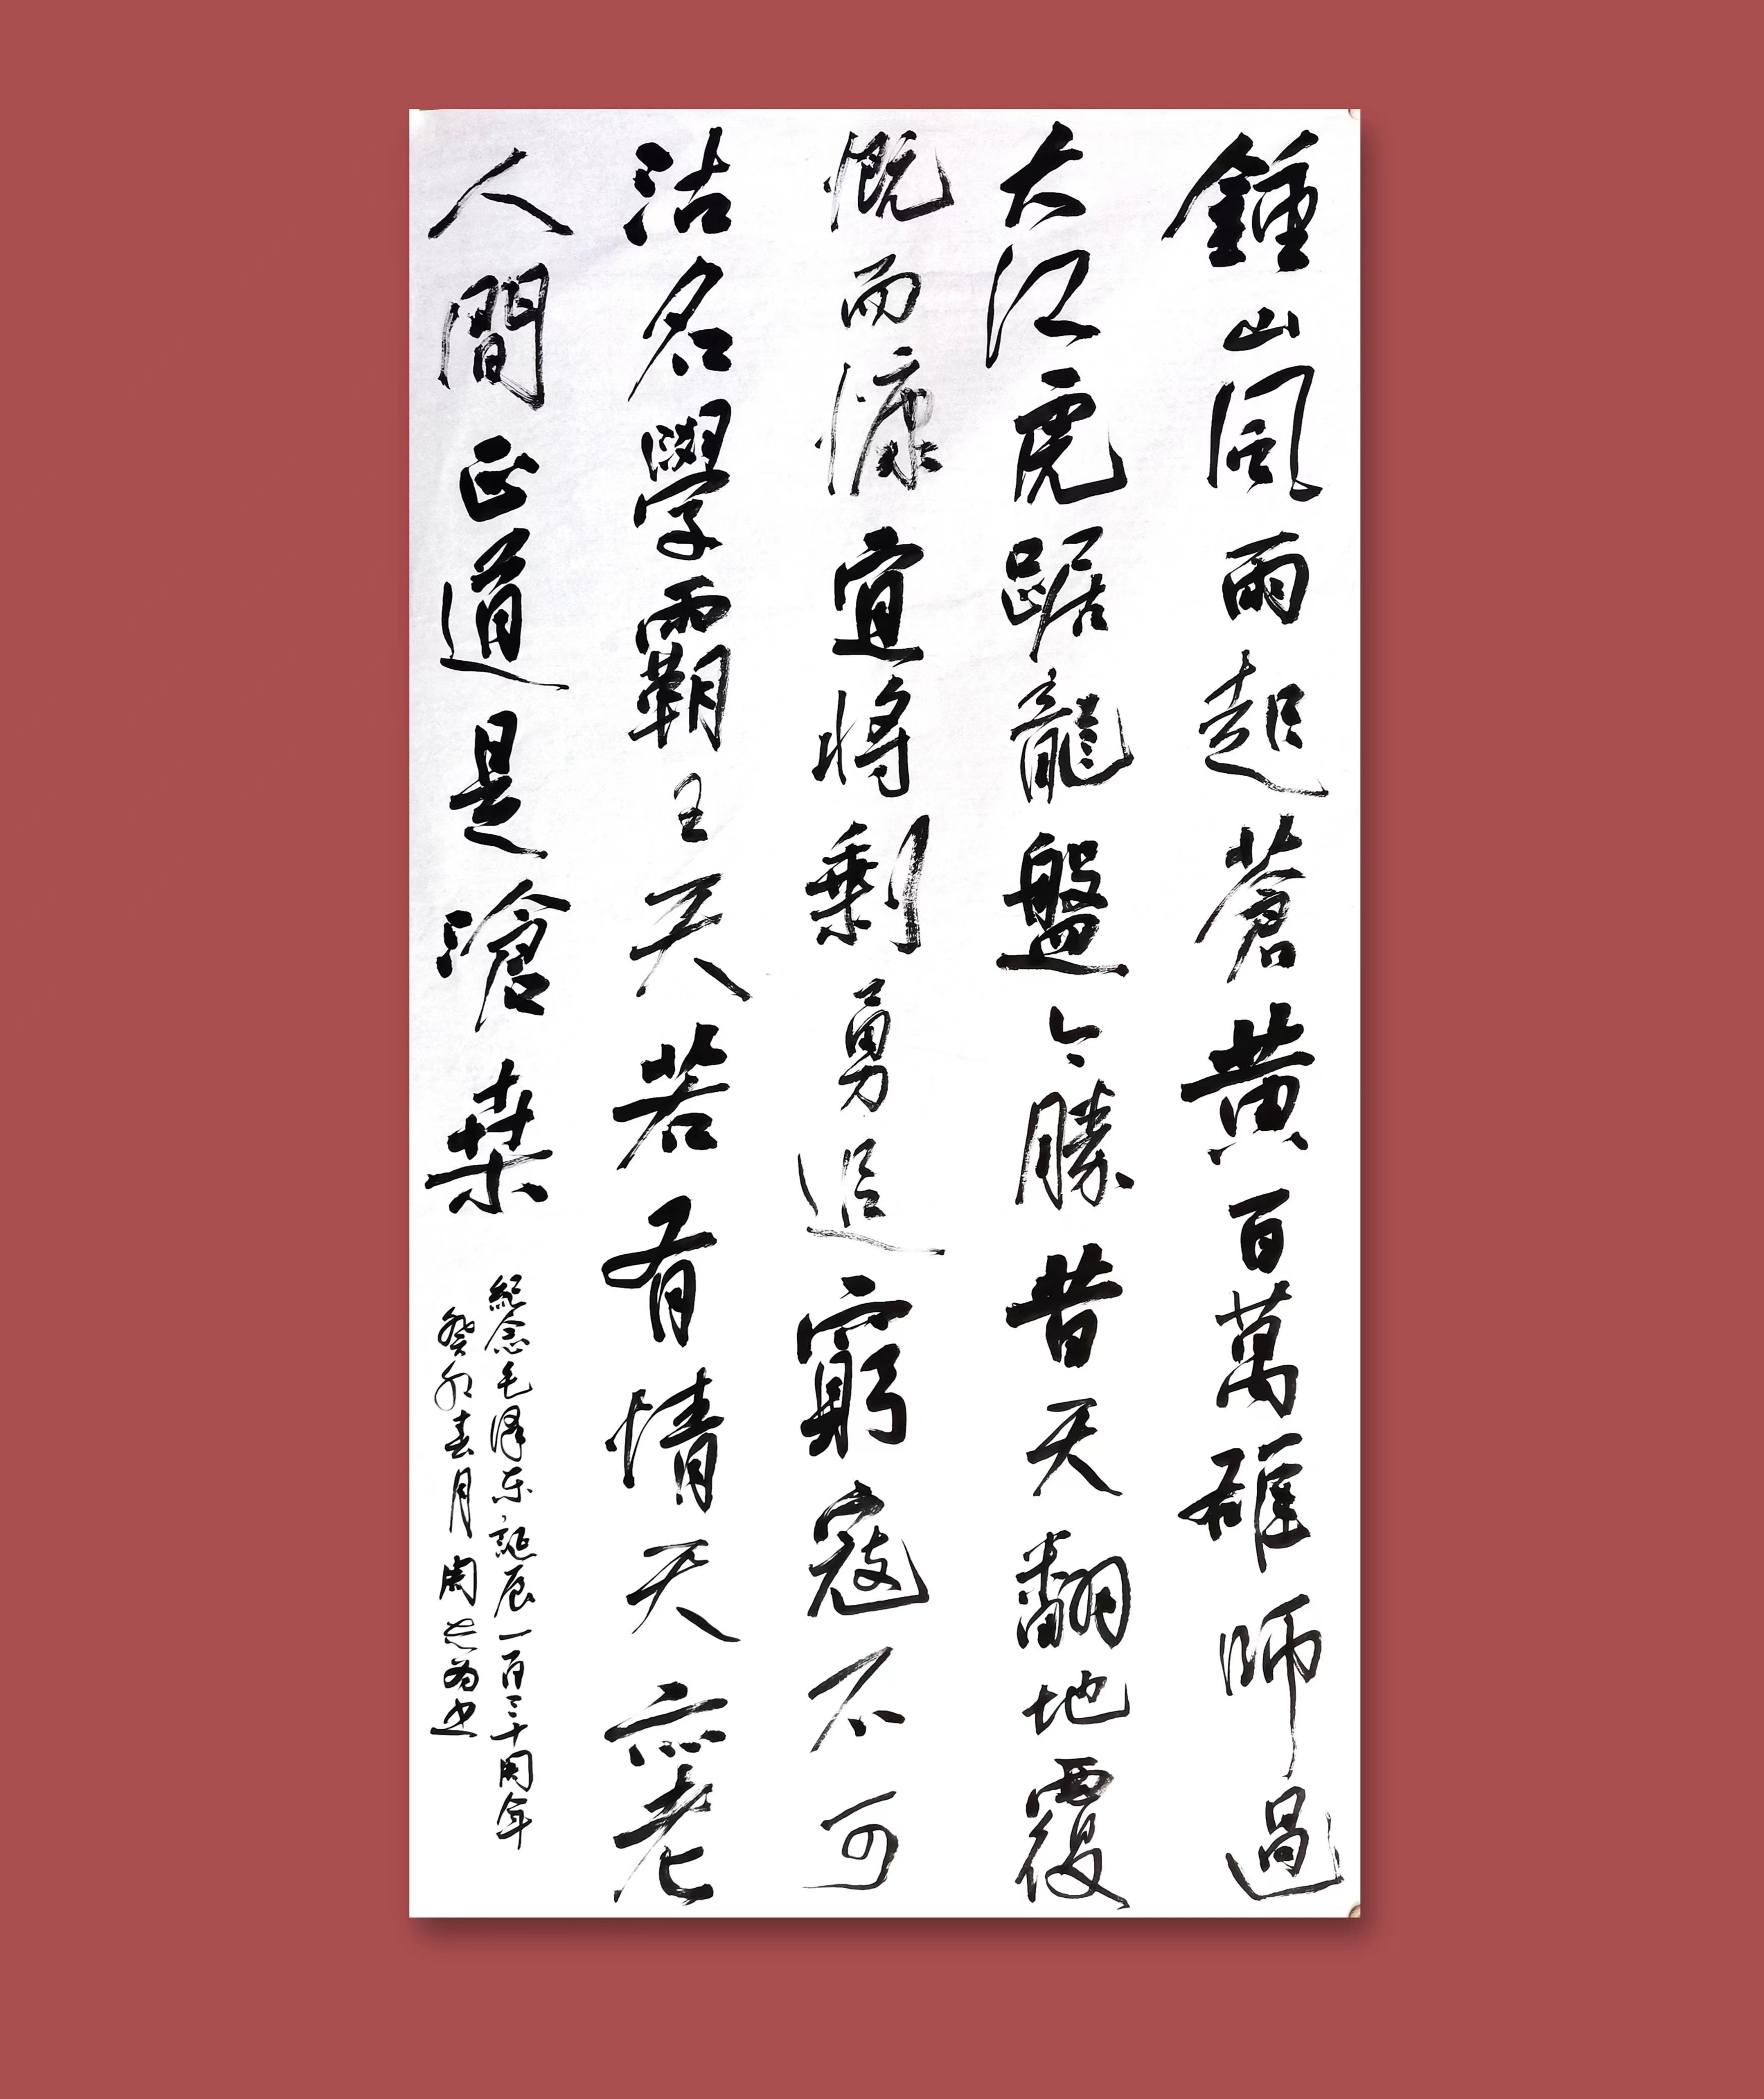 鍾山風雨起蒼黃百萬雄師過
大江虎踞龍盤今勝昔天翻地覆
慨而慷宜將剩勇追窮寇不可
沽名學霸王天若有情天亦老
人間正道是滄桑
紀念毛泽东誕辰一百三十周年
癸卯春月周